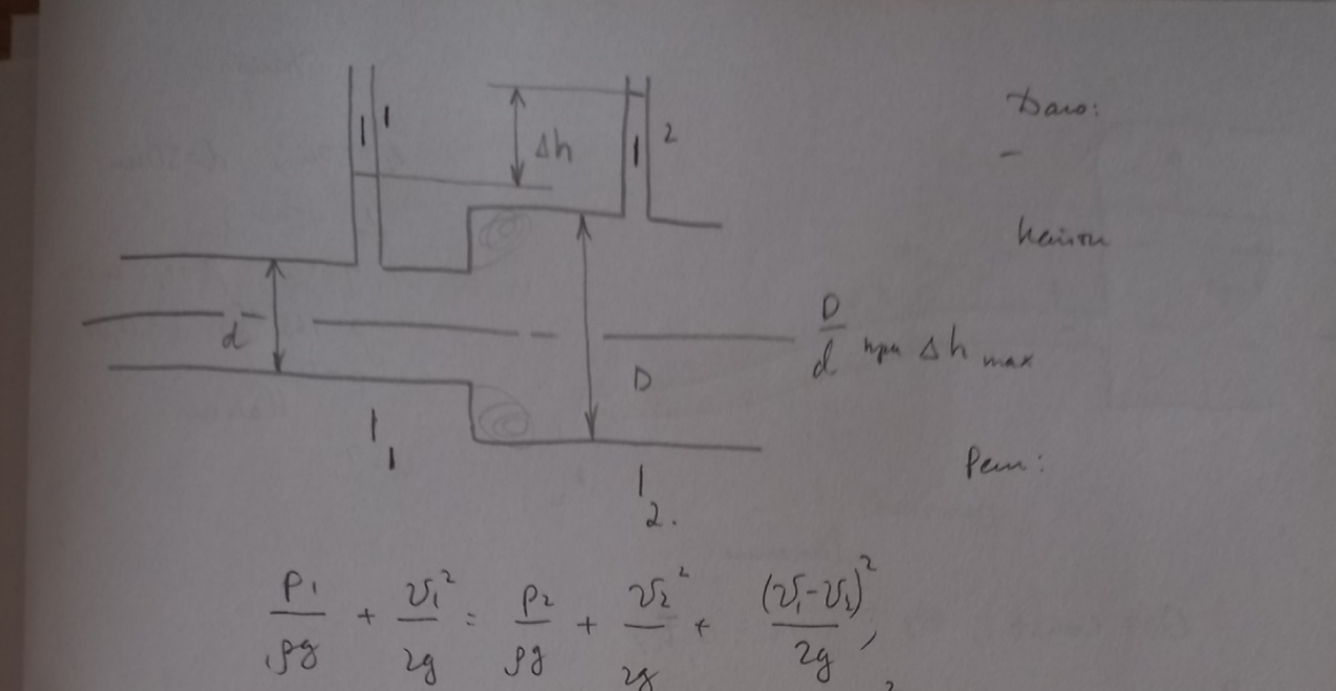 1 2
Δh
Дано:
-
Найти
d
D
D/d при Δh max
1
2.
Реш:
P₁/ρg + υ₁²/2g = P₂/ρg + υ₂²/2g + (υ₁-υ₂)²/2g ,